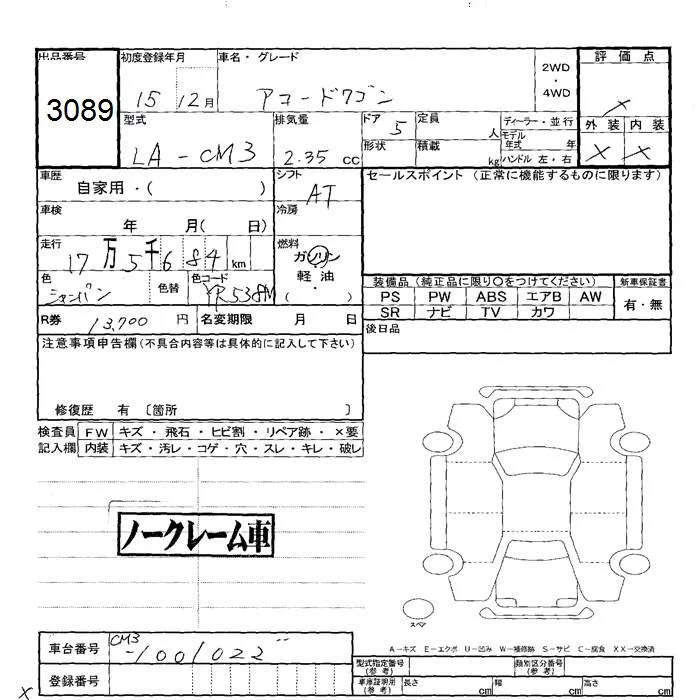 出品番号 初度登録年月 車名・グレード 2WD・4WD 評価点
3089 15 12月 アコードワゴン ×
型式 排気量 ドア 5 定員 人 ディーラー・並行 外装 内装
形状 積載 kg モデル年式 年 ハンドル 左・右
LA-CM3 2.35 cc × ×
車歴 自家用・( ) シフト AT セールスポイント (正常に機能するものに限ります)
車検 年 月( 日) 冷房
走行 17万5千684 km 燃料 ガソリン 軽・油 ( )
色 シャンパン 色替 色コード YR538M
装備品 (純正品に限り○をつけてください) 新車保証書
PS PW ABS エアB AW 有・無
SR ナビ TV カワ
R券 13,700 円 名変期限 月 日 後日品
注意事項申告欄(不具合内容等は具体的に記入して下さい)
修復歴 有 〔箇所 〕
検査員 FW キズ・飛石・ヒビ割・リペア跡・×要
記入欄 内装 キズ・汚レ・コゲ・穴・スレ・キレ・破レ
ノークレーム車
スペア
A-キズ E-エクボ U-凹み W-補修跡 S-サビ C-腐食 XX-交換済
車台番号 CM3-1001022
型式指定番号(参考) 類別区分番号(参考)
登録番号 車庫証明用(参考) 長さ cm 幅 cm 高さ cm
×